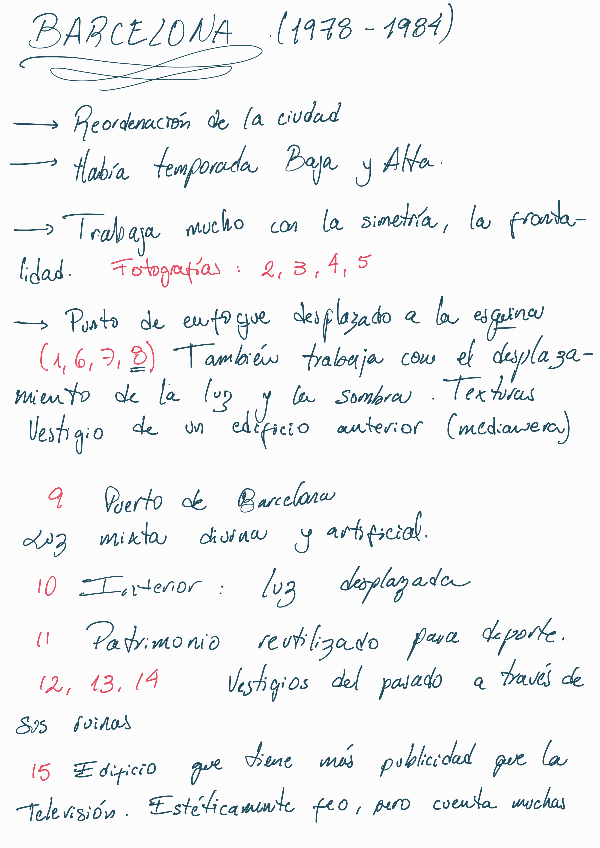 BARCELONA (1978 - 1984)
→ Reordenación de la ciudad
→ Había temporada Baja y Alta.
→ Trabaja mucho con la simetría, la fronta-
lidad. Fotografías : 2, 3, 4, 5
→ Punto de enfoque desplazado a la esquina
(1, 6, 7, 8) También trabaja con el desplaza-
miento de la luz y la sombra. Texturas
Vestigio de un edificio anterior (medianera)
9 Puerto de Barcelona
Luz mixta divina y artificial.
10 Interior : luz desplazada
11 Patrimonio reutilizado para deporte.
12, 13, 14 Vestigios del pasado a través de
sus ruinas
15 Edificio que tiene más publicidad que la
Televisión. Estéticamente feo, pero cuenta muchas